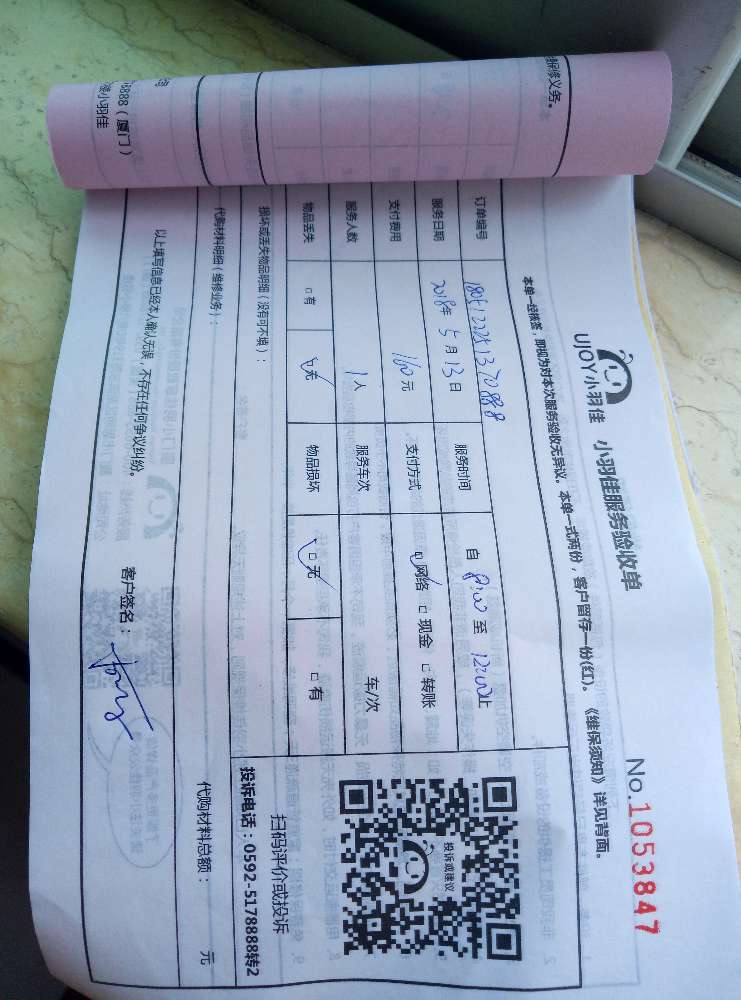 UJOY小羽佳 小羽佳服务验收单
No.1053847
本单一经核签，即视为对本次服务验收无异议。本单一式两份，客户留存一份(红)。《维保须知》详见背面。
订单编号 服务时间 自 8:00 至 12:00止
服务日期 2018年 5月 13日 支付方式 网络 现金 转账
支付费用 160元
服务人数 1人 服务车次 车/次
物品丢失 有 无 物品损坏 无 有
投诉或建议
扫码评价或投诉
投诉电话：0592-5178888转2
损坏或丢失物品明细（没有可不填）：
代购材料明细（维修业务）： 代购材料总额： 元
以上填写信息已经本人确认无误，不存在任何争议纠纷。 客户签名：
保修义务。
8888（厦门）
小羽佳